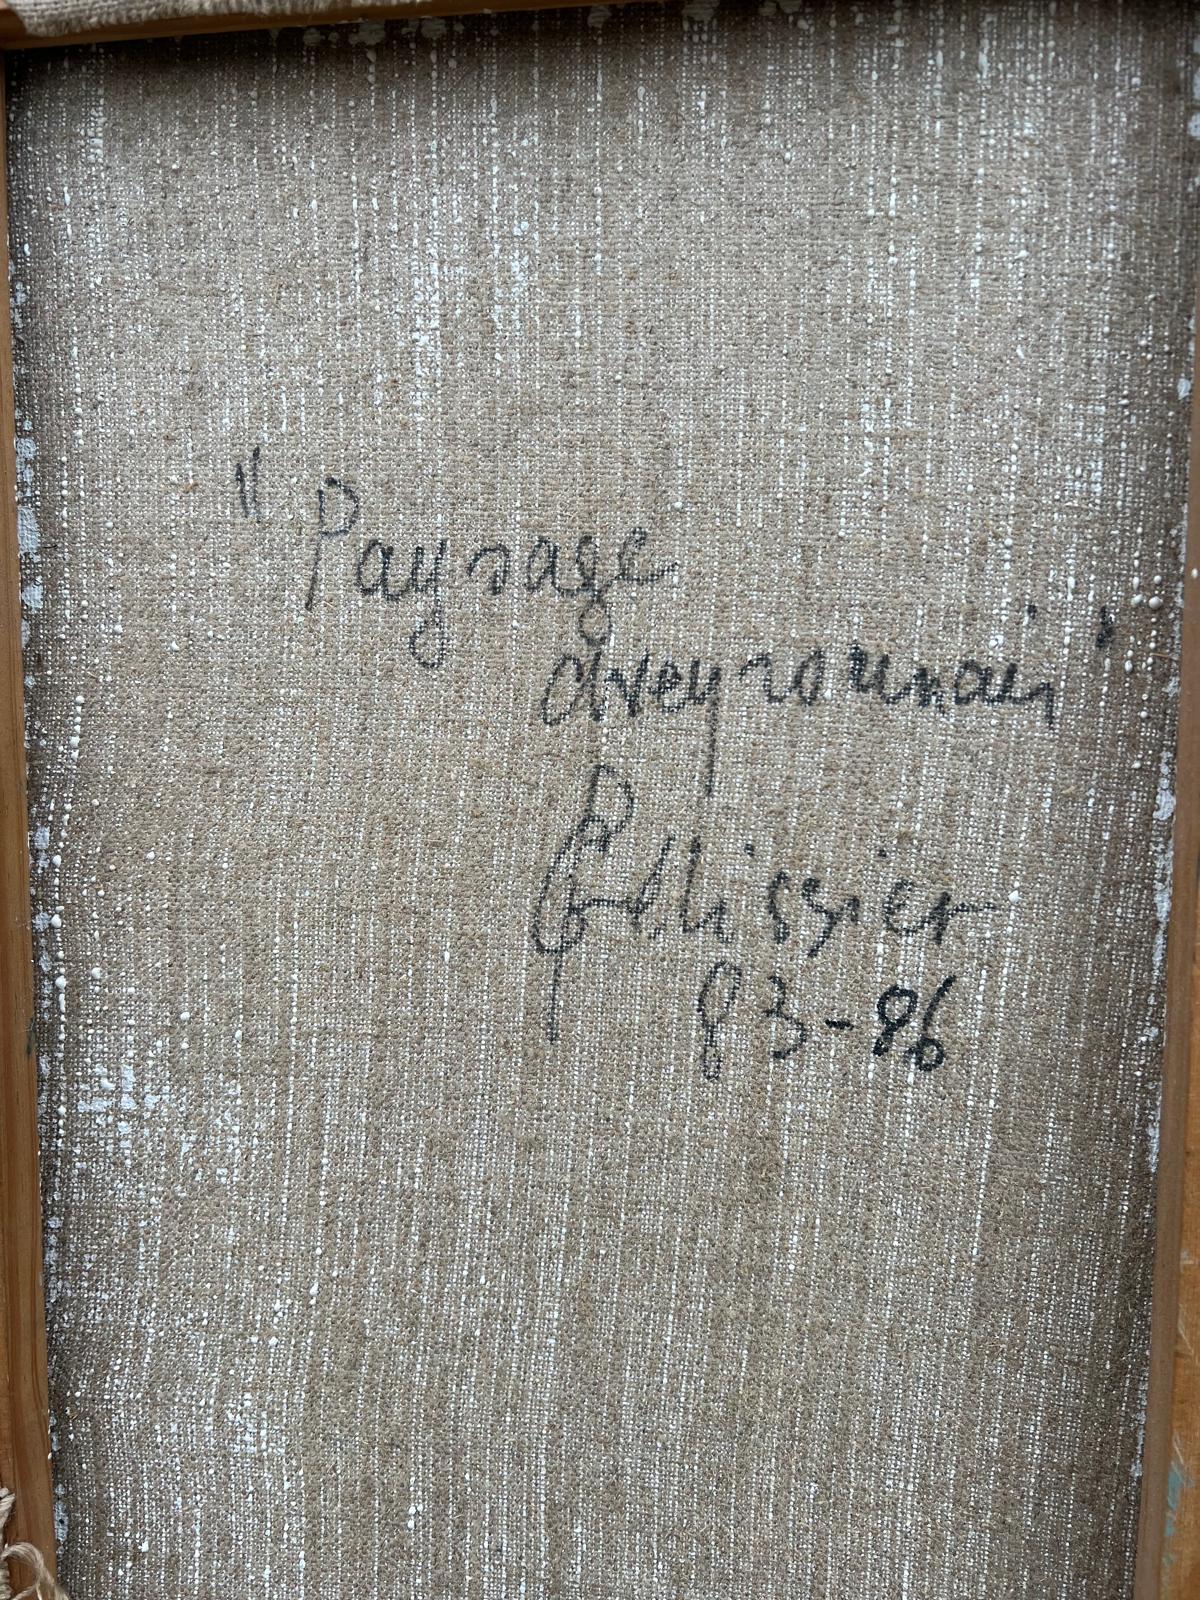 "Paysage
aveyronnais"
Pellissier
83-86